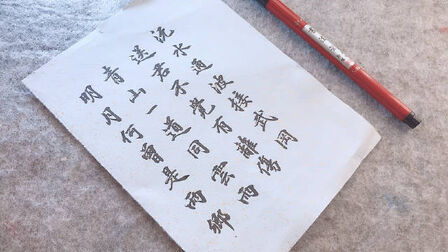 沅水通波接武岡
送君不覺有離傷
青山一道同雲雨
明月何曾是兩鄉